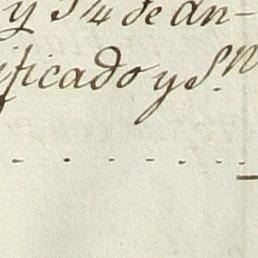 y 3/4 de an-
ificado y S.n
. . . . . . .